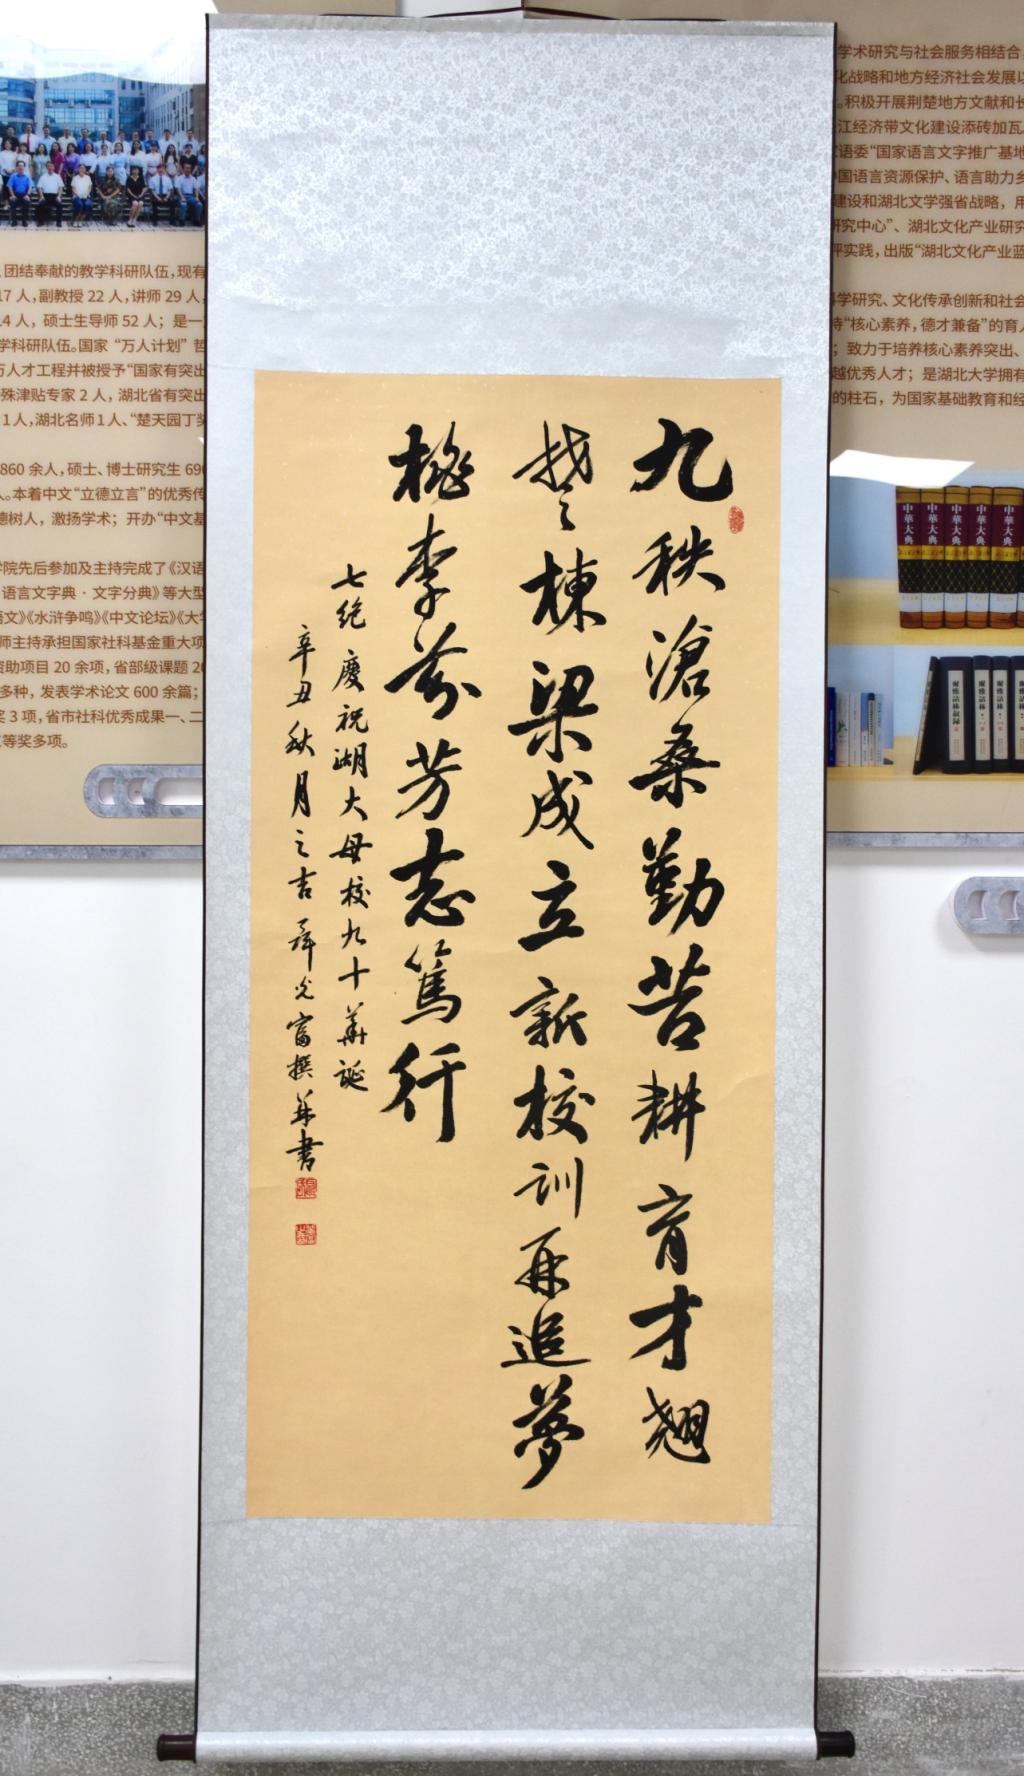 九秩滄桑勤苦耕育才翹
楚棟梁成立新校训再追夢
桃李芬芳志篤行
七绝 慶祝湖大母校九十華誕
辛丑秋月之吉 光富撰并书
团结奉献的教学科研队伍,现有
17 人,副教授 22 人,讲师 29 人,
14 人,硕士生导师 52 人;是一
学科研队伍。国家“万人计划”哲
万人才工程并被授予“国家有突出
殊津贴专家 2 人,湖北省有突出
1 人,湖北名师 1 人、“楚天园丁奖
860 余人,硕士、博士研究生 690
人。本着中文“立德立言”的优秀传
德树人,激扬学术;开办“中文基
学院先后参加及主持完成了《汉语
语言文字典·文字分典》等大型
语文》《水浒争鸣》《中文论坛》《大学
师主持承担国家社科基金重大项
资助项目 20 余项,省部级课题 20
多种,发表学术论文 600 余篇;
奖 3 项,省市社科优秀成果一、二
等奖多项。
学术研究与社会服务相结合
化战略和地方经济社会发展以
。积极开展荆楚地方文献和长
江经济带文化建设添砖加瓦
语委“国家语言文字推广基地
中国语言资源保护、语言助力乡
建设和湖北文学强省战略,用
研究中心”、湖北文化产业研究
评实践,出版“湖北文化产业蓝
科学研究、文化传承创新和社会
持“核心素养,德才兼备”的育人
;致力于培养核心素养突出、
越优秀人才;是湖北大学拥有
的柱石,为国家基础教育和经
中華大典
中華大典
中華大典
中華大典
中華大典